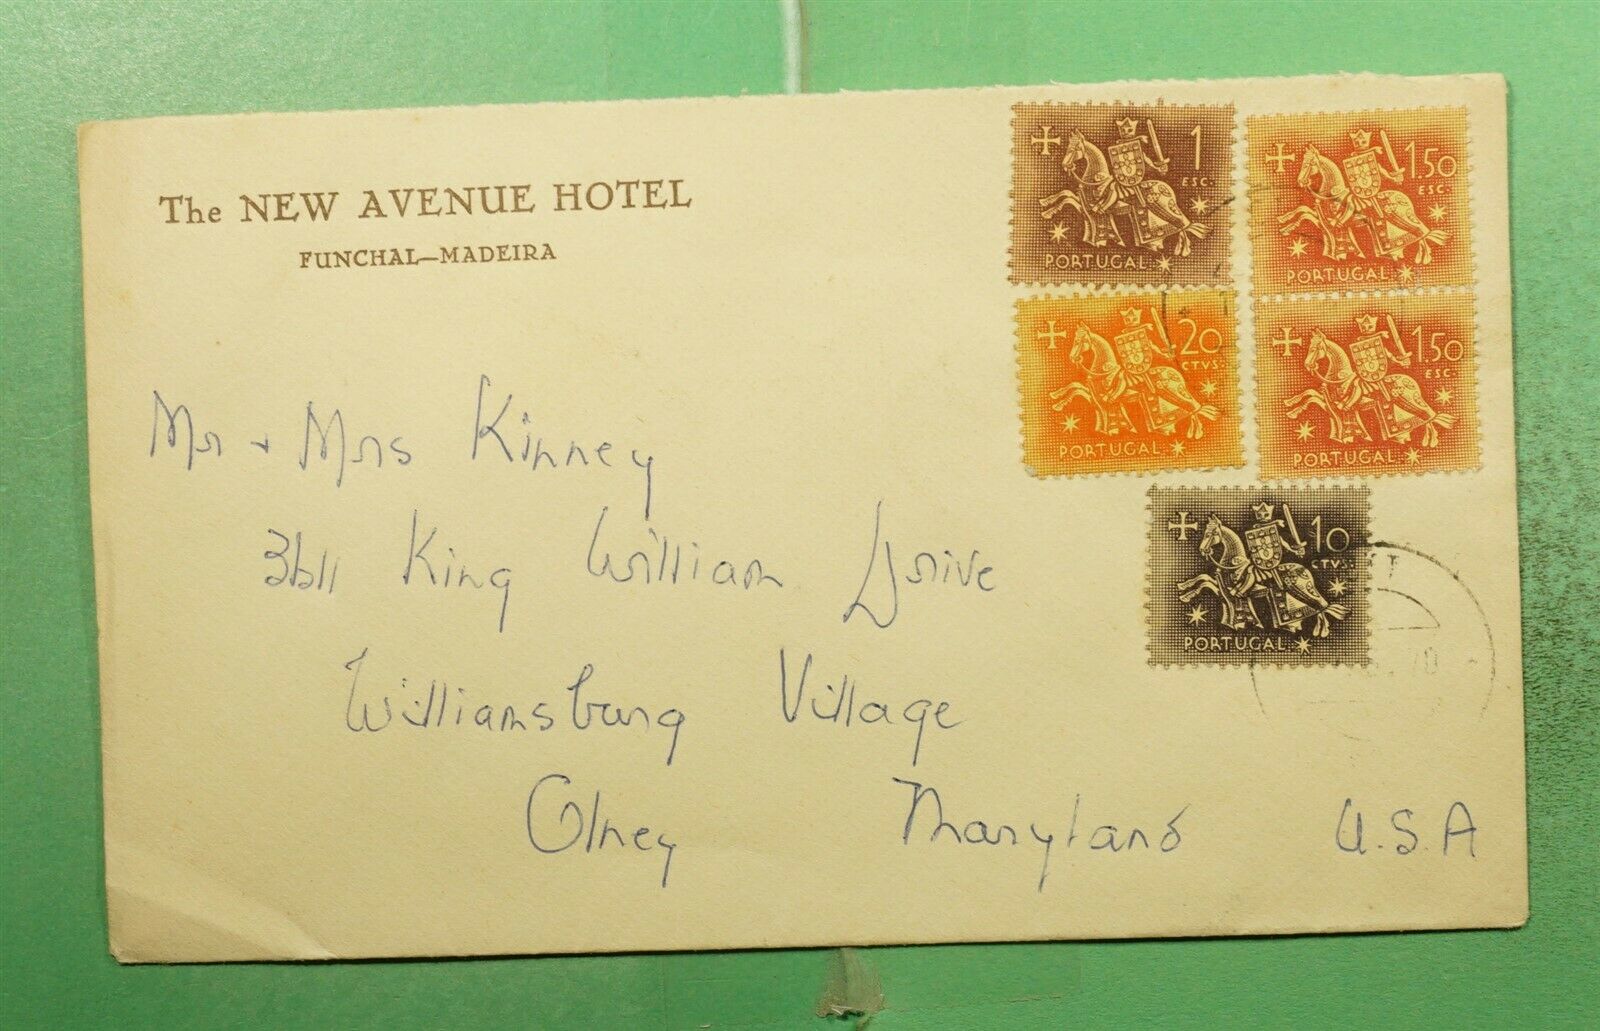 The NEW AVENUE HOTEL
FUNCHAL—MADEIRA
1 ESC.
PORTUGAL
1.50 ESC.
PORTUGAL
20 CTVS.
PORTUGAL
1.50 ESC.
PORTUGAL
10 CTVS.
PORTUGAL
70
Mr + Mrs Kinney
3611 King William Drive
Williamsburg Village
Olney Maryland U.S.A